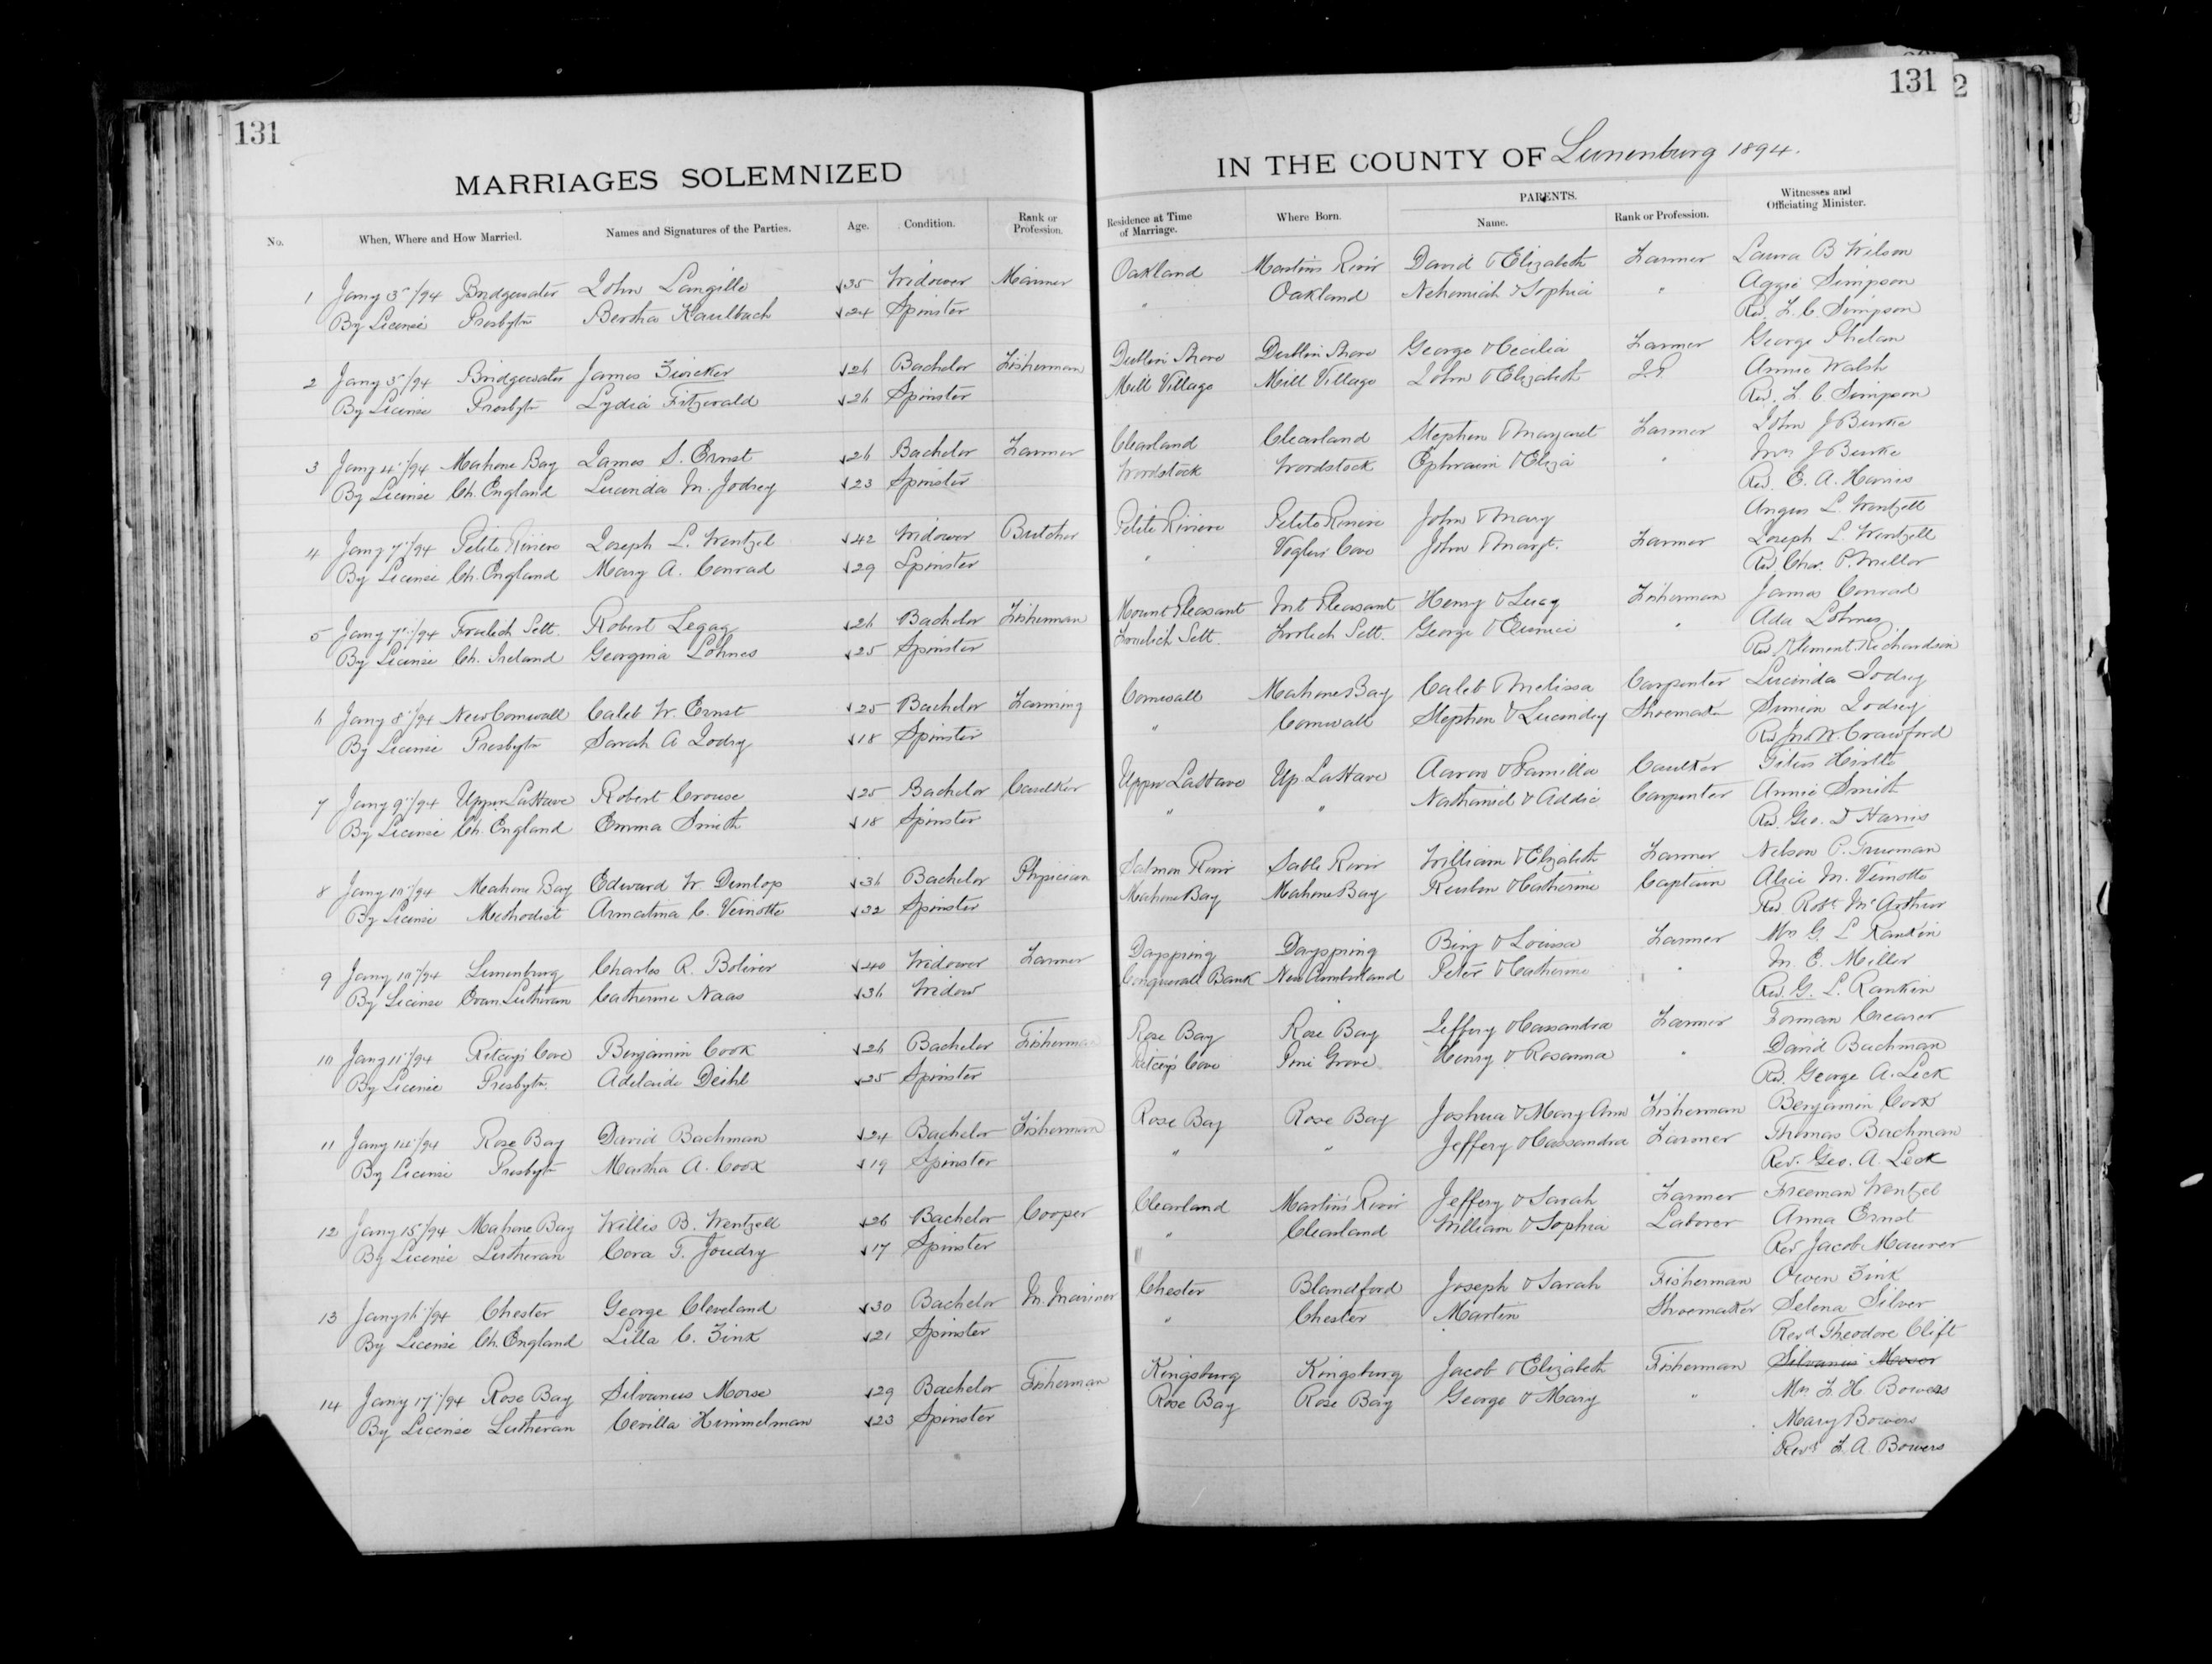 131
131
2
MARRIAGES SOLEMNIZED IN THE COUNTY OF Lunenburg 1894.
No. When, Where and How Married. Names and Signatures of the Parties. Age. Condition. Rank or Profession. Residence at Time of Marriage. Where Born. PARENTS. Name. Rank or Profession. Witnesses and Officiating Minister.
1 Jany 3/94 Bridgewater John Langille 35 Widower Mariner Oakland Martins River David & Elizabeth Farmer Laura B Wilson
By License Presbytn Bertha Kaulbach 24 Spinster " Oakland Nehemiah & Sophia " Aggie Simpson
Rev. F. C. Simpson
2 Jany 3/94 Bridgewater James Zwicker 26 Bachelor Fisherman Dublin Shore Dublin Shore George & Cecilia Farmer George Phelan
By License Presbytn Lydia Fitzerald 26 Spinster Mill Village Mill Village John & Elizabeth J.P. Annie Walsh
Rev. F. C. Simpson
3 Jany 4/94 Mahone Bay James S. Ernst 26 Bachelor Farmer Clearland Clearland Stephen & Margaret Farmer John J Burke
By License Ch. England Lucinda M. Jodrey 23 Spinster Woodstock Woodstock Ephraim & Eliza " Mrs J Burke
Rev. E. A. Harris
4 Jany 7/94 Petite Riviere Joseph L. Wentzel 42 Widower Butcher Petite Riviere Petite Riviere John & Mary Angus L. Wentzell
By License Ch. England Mary A. Conrad 29 Spinster " Voglers Cove John & Margt. Farmer Joseph L. Wentzell
Rev Chas. P. Mellor
5 Jany 7/94 Froelich Sett. Robert Legag 26 Bachelor Fisherman Mount Pleasant Mt Pleasant Henry & Lucy Fisherman James Conrad
By License Ch. Ireland Georgina Lohnes 25 Spinster Froelich Sett. Frolich Sett. George & Eunice " Ada Lohnes
Rev. Clement Richardson
6 Jany 8/94 New Cornwall Caleb W. Ernst 25 Bachelor Farming Cornwall Mahone Bay Caleb & Melissa Carpenter Lucinda Jodrey
By License Presbytn Sarah A Jodry 18 Spinster " Cornwall Stephen & Lucindey Shoemaker Simion Jodrey
Rev Jno. W. Crawford
7 Jany 9/94 Upper LaHave Robert Crouse 25 Bachelor Caulker Upper LaHave Up. LaHave Aaron & Pamilla Caulker Titus Hirtle
By License Ch. England Emma Smith 18 Spinster " " Nathaniel & Addie Carpenter Annie Smith
Rev. Geo. D Harris
8 Jany 10/94 Mahone Bay Edward W. Dunlop 36 Bachelor Physician Salmon River Sable River William & Elizabeth Farmer Nelson P. Trueman
By License Methodist Armatina C. Veinotte 32 Spinster Mahone Bay Mahone Bay Reuben & Catherine Captain Alice M. Veinotte
Rev. Robt McArthur
9 Jany 10/94 Lunenburg Charles R. Boliver 40 Widower Farmer Dayspring Dayspring Binj & Louisa Farmer Mrs G. L Rankin
By License Evan Lutheran Catherine Naas 36 Widow Conquerall Bank New Cumberland Peter & Catherine " M. E. Miller
Rev. G. L. Rankin
10 Jany 11/94 Ritceys Cove Benjamin Cook 26 Bachelor Fisherman Rose Bay Rose Bay Jeffery & Cassandra Farmer Forman Creaser
By License Presbytn. Adelaide Deihl 25 Spinster Ritceys Cove Pine Grove Henry & Rosanna " David Bachman
Rev. George A. Leck
11 Jany 14/94 Rose Bay David Bachman 24 Bachelor Fisherman Rose Bay Rose Bay Joshua & Mary Ann Fisherman Benjamin Cook
By License Presbytn Martha A. Cook 19 Spinster " " Jeffery & Cassandra Farmer Thomas Bachman
Rev. Geo. A. Leck
12 Jany 15/94 Mahone Bay Willis B. Wentzell 26 Bachelor Cooper Clearland Martins River Jeffery & Sarah Farmer Freeman Wentzel
By License Lutheran Cora T. Joudry 17 Spinster " Clearland William & Sophia Laborer Anna Ernst
Rev Jacob Maurer
13 Jany 16/94 Chester George Cleveland 30 Bachelor M. Mariner Chester Blandford Joseph & Sarah Fisherman Owen Zink
By License Ch. England Lilla C. Zink 21 Spinster " Chester Martin Shoemaker Selena Silver
Revd Theodore Clift
14 Jany 17/94 Rose Bay Silvanus Morse 29 Bachelor Fisherman Kingsburg Kingsburg Jacob & Elizabeth Fisherman Silvanus Moser
By License Lutheran Cevilla Himmelman 23 Spinster Rose Bay Rose Bay George & Mary " Mrs F. H. Bowers
Mary Bowers
Revd F. A. Bowers